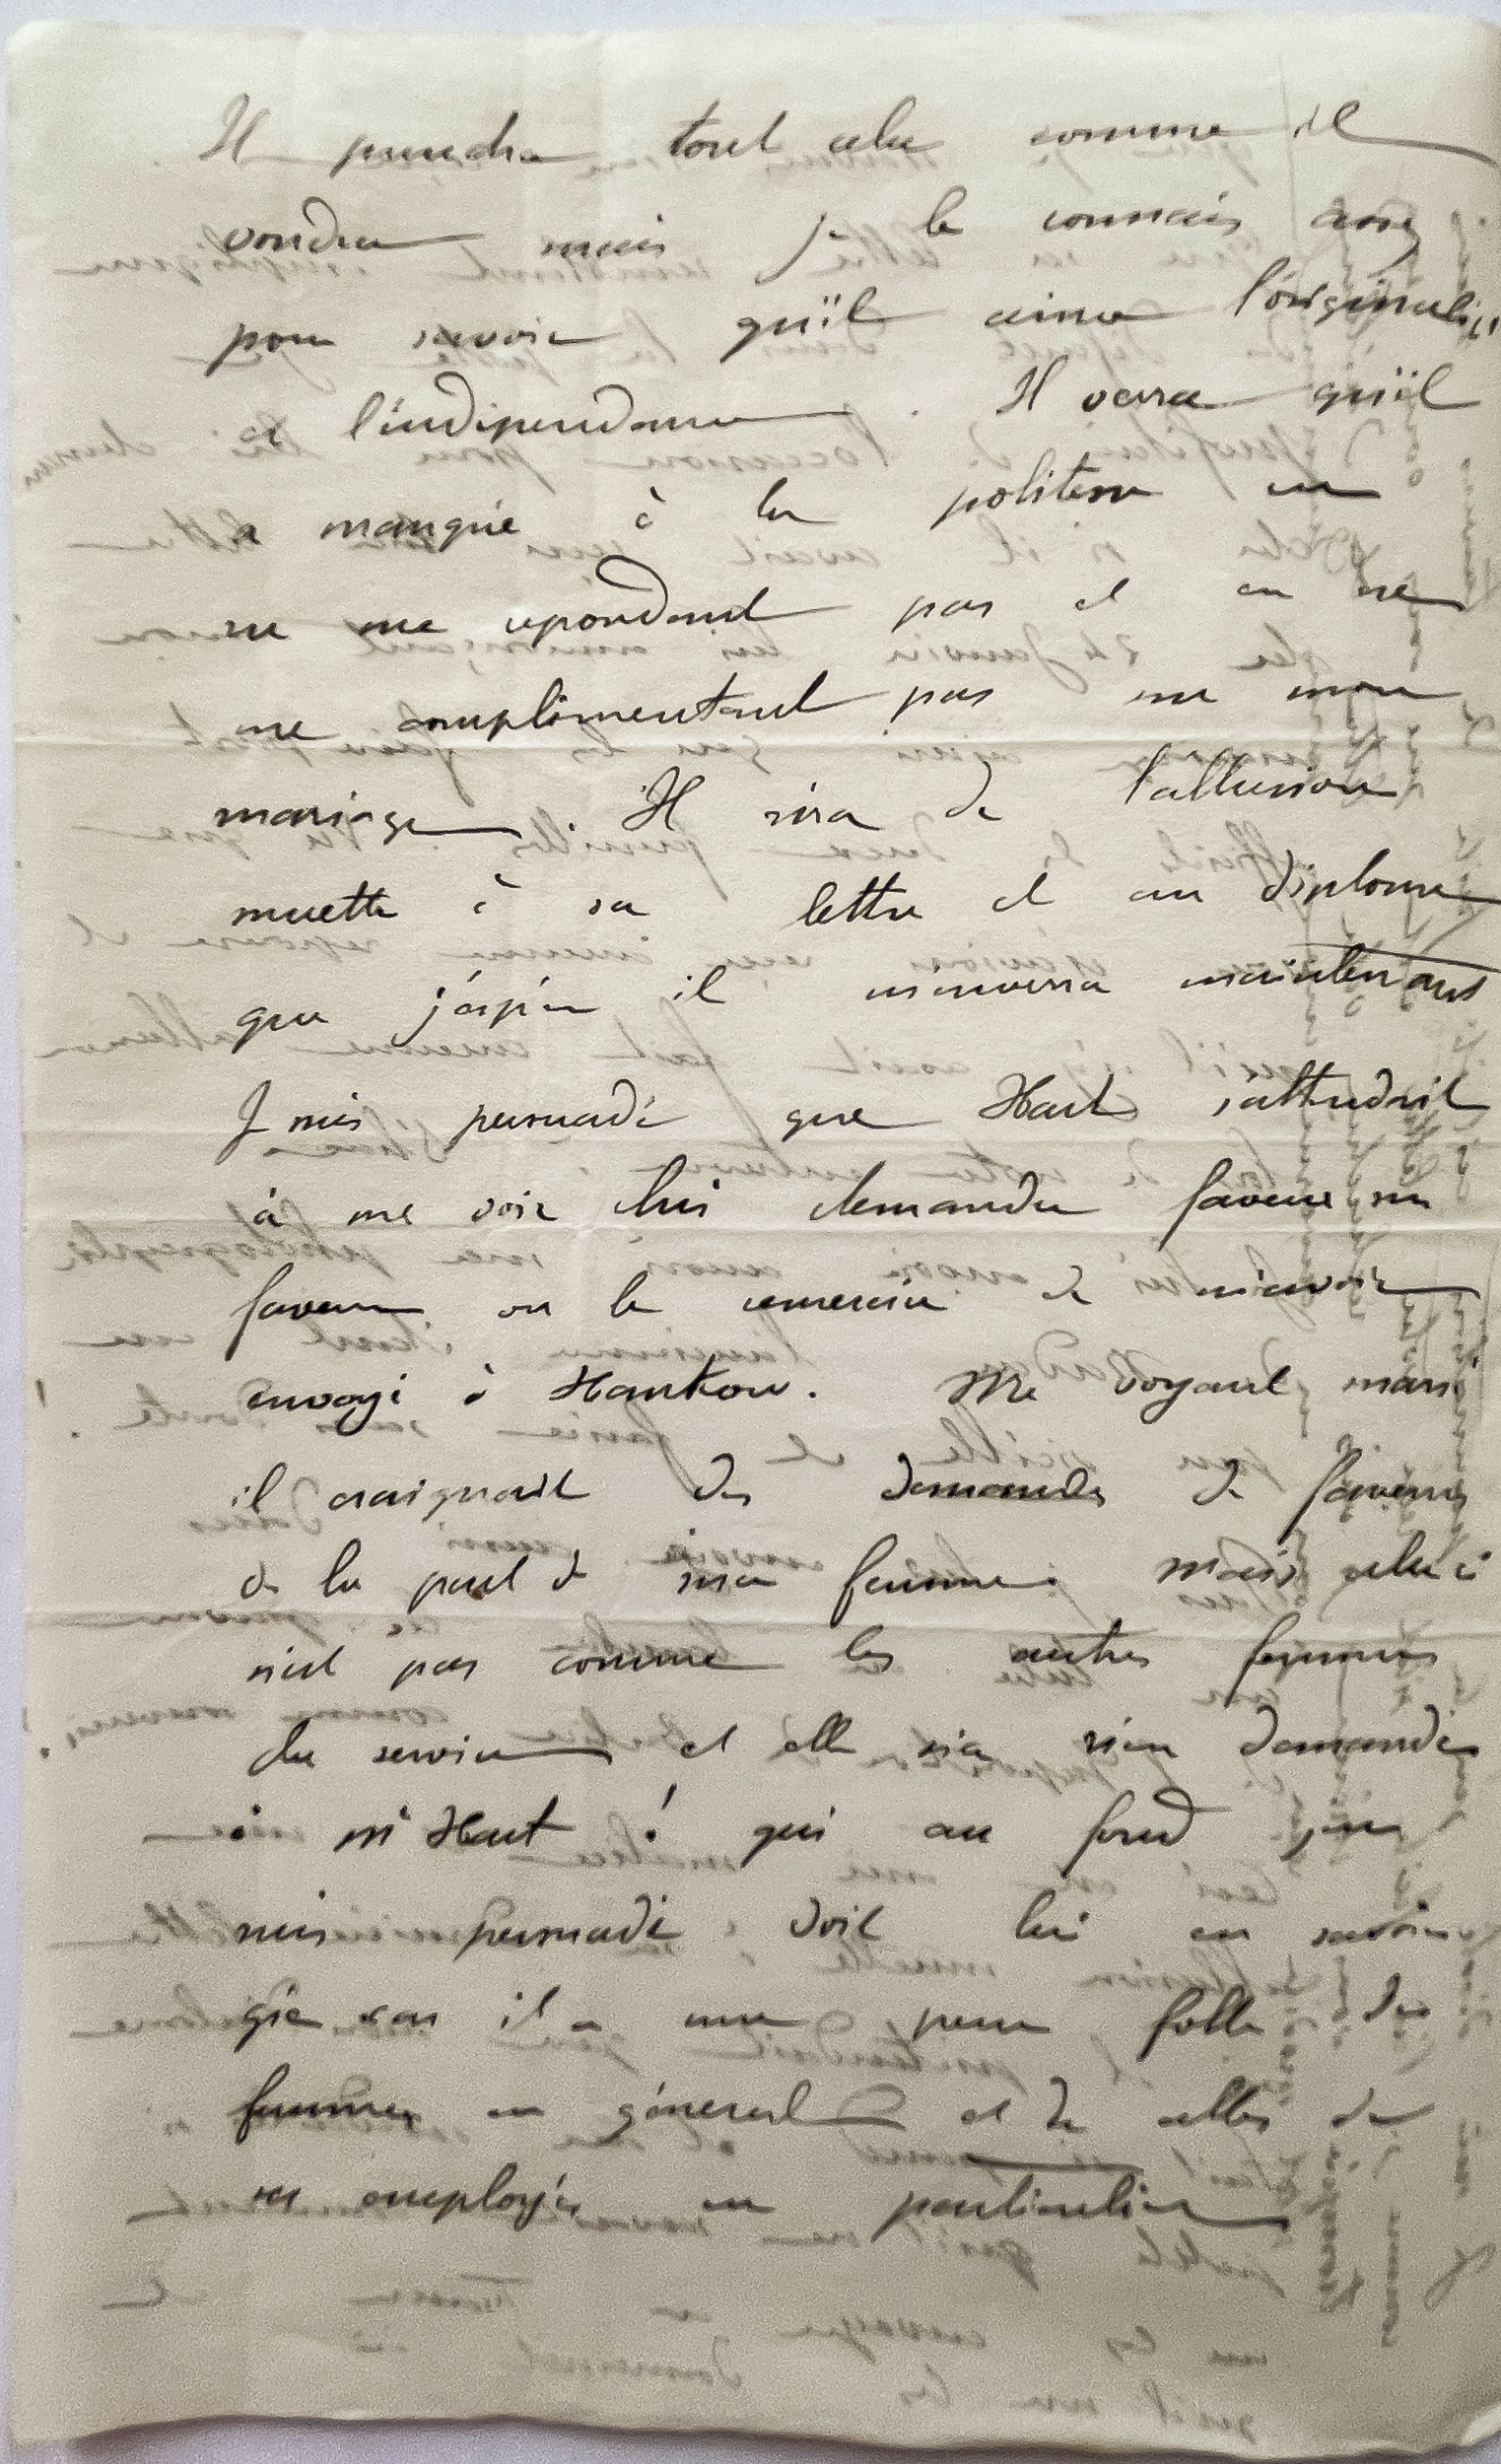 Il prendra tout cela comme il
voudra mais je le connais assez
pour savoir qu'il aime l'originalité
et l'indipendance. Il verra qu'il
a manqué à la politesse en
ne me repondant pas et en ne
me complimentant pas sur mon
mariage. Il rira de l'allusion
muette à sa lettre et au diplome
que j'éspère il m'enverra maintenant
Je suis persuadé que Hart s'attendait
à me voir lui demander faveur sur
faveur ou le remercier de m'avoir
envoyé à Hankow. Me voyant marié
il craignait des demandes de faveurs
de la part de ma femme. Mais celle ci
n'est pas comme les autres femmes
du service et elle n'a rien demandé
à Mr Hart! qui au fond j'en
suis persuadé doit lui en savoir
gré car il a une peur folle des
femmes en géneral et de celles de
ses employés en particulier